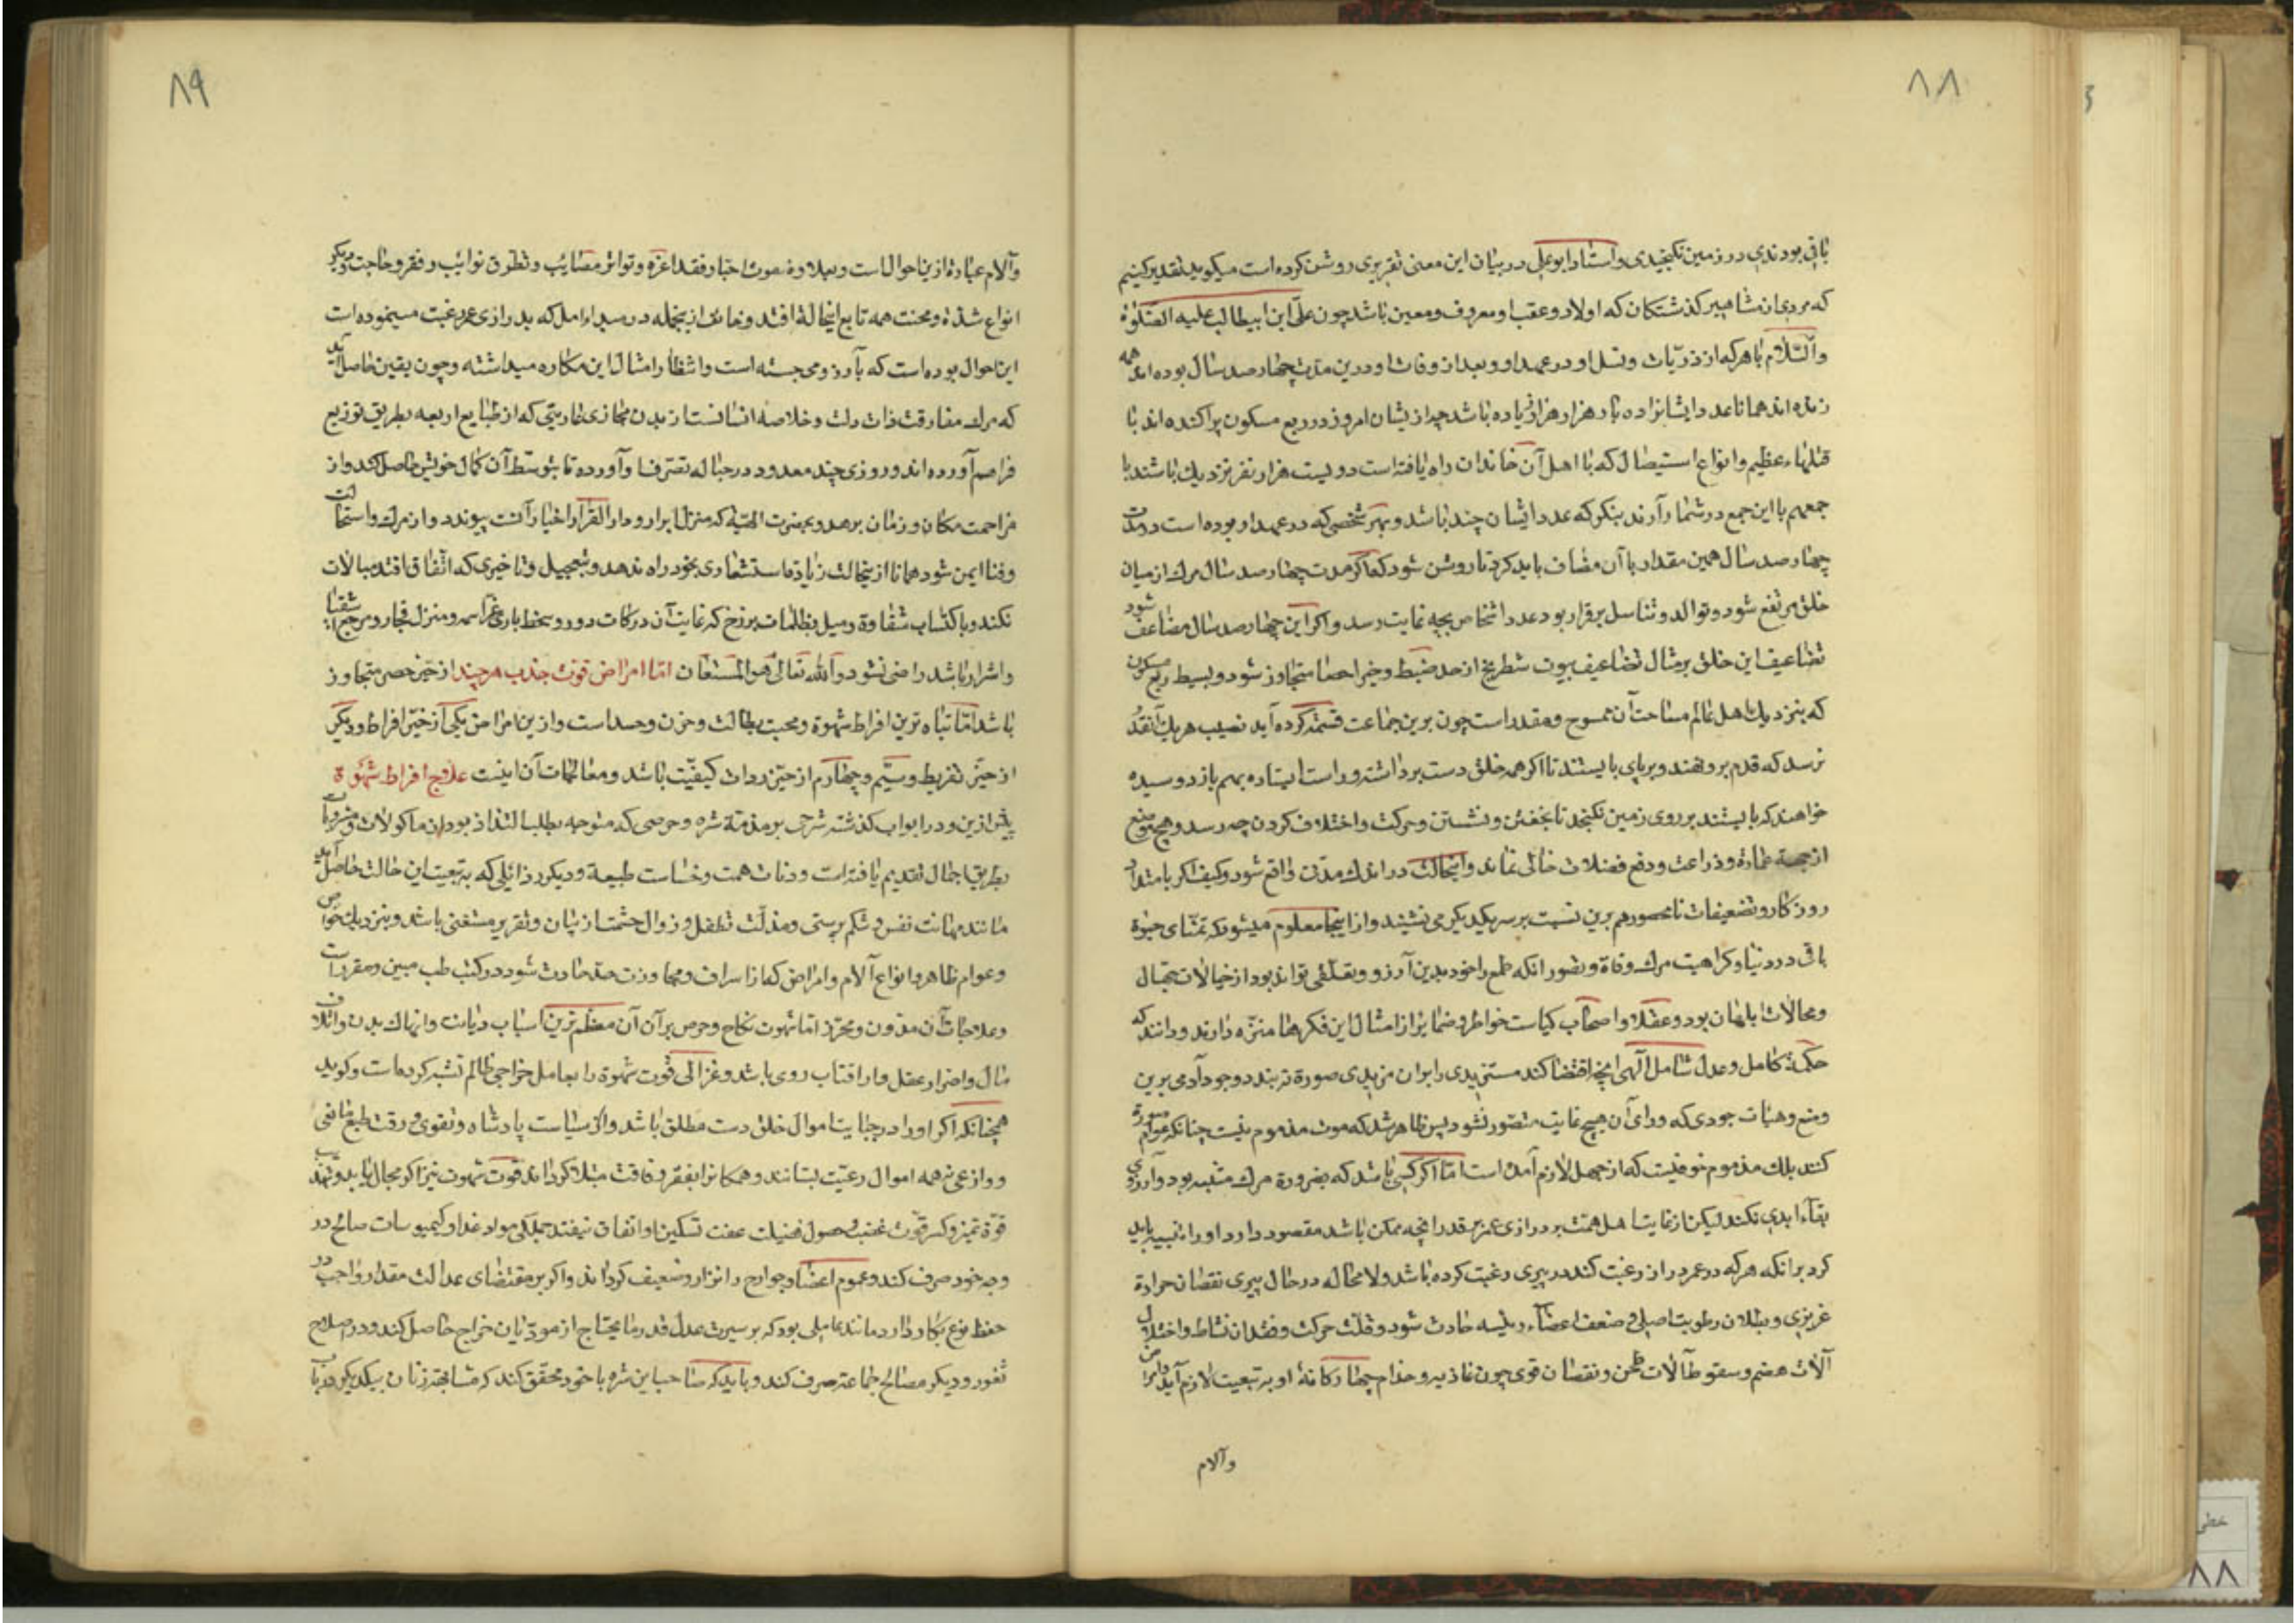 ۸۸
باقی بودندی در زمین نکنجیدی و استاد ابو علی در بیان این معنی تقریری روشن کرده است میکوید تقدیر کنیم
که مردی از مشاهیر کذشتکان که اولاد و عقب او معروف و معین باشد چون علی ابن ابیطالب علیه الصلوة
والسلام با هر که از ذریات و نسل او در عهد او و بعد از وفات او درین مدت چهار صد سال بوده اند همه
زنده اند همانا عدد ایشان از ده بار هزار هزار زیاده باشد چه از یشان امروز در ربع مسکون پراکنده اند با
قتلهاء عظیم و انواع استیصال که با اهل آن خاندان راه یافته است دویست هزار نفر نزدیک باشند با
جمعهم با این جمع در شمار آرند بنکر که عدد ایشان چند باشد و بهر شخصی که در عهد او بوده است در مدت
چهار صد سال همین مقدار با آن مضاف باید کرد تا روشن شود که اکر مدت چهار صد سال مرک از میان
خلق مرتفع شود و توالد و تناسل برقرار بود عدد اشخاص بچه غایت رسد و اکر این چهار صد سال مضاعف شود
تضاعیف این خلق بر مثال تضاعیف بیوت شطرنج از حد ضبط و حیز احصا متجاوز شود و بسیط ربع مسکون
که بنزدیک اهل عالم مساحت آن ممسوح و مقدر است چون برین جماعت قسمت کرده آید نصیب هر یک آنقدر
نرسد که قدم برو نهند و بر پای بایستند تا اکر همه خلق دست برداشته و راست ایستاده بهم باز دوسیده
خواهند که بایستند بر روی زمین نکنجد تا بخفتن و نشستن و حرکت و اختلاف کردن چه رسد و هیچ موضع
از جهة عمارة و زراعت و دفع فضلات خالی نماند و اینحالت در اندک مدتی واقع شود و کیف اکر بامتداد
روزکار و تضعیفات نامحصور هم برین نسبت بر سر یکدیکر می نشیند و از اینجا معلوم میشود که تمنای حیوة
باقی در دنیا و کراهیت مرک و وفاة و تصور آنکه طمع را خود بدین آرزو و تعلقی تواند بود از خیالات جهال
و محالات ابلهان بود و عقلا و اصحاب کیاست خواطر و ضمایر از امثال این فکرها منزه دارند و دانند که
حکمة کامل و عدل شامل الهی آنچه اقتضا کند مستزیدی را بران مزیدی صورة نه بندد و وجود آدمی برین
وضع و هیأت وجودی که ورای آن هیچ غایت متصور نشود پس ظاهر شد که موت مذموم نیست چنانکه عوام صورة
کنند بلک مذموم خوفیست که از جهل لازم آمده است اما اکر کسی باشد که بضرورة مرک متنبه بود و آرزوی
بقاء ابدی نکند لیکن از غایت اهل همت بر درازی عمر بر قدر آنچه ممکن باشد مقصود دارد او را تنبیه باید
کرد بر آنکه هر که در عمر دراز رغبت کند در پیری رغبت کرده باشد و لا محاله در حال پیری نقصان حرارة
غریزی و بطلان رطوبت اصلی و ضعف اعضاء رئیسه حادث شود و قلت حرکت و فقدان نشاط و اختلال
آلات هضم و سقوط آلات طحن و نقصان قوی چون غاذیه و خدام چهارکانۀ او بتبعیت لازم آید و امراض
وآلام
۸۹
وآلام عبارة ازین احوال است و بعلاوه موت احبا و فقد اعزه و تواتر مصایب و تطرق نوائب و فقر و حاجت و دیکر
انواع شدة و محنت همه تابع اینحالة افتد و خائف از ینجمله در مبداء امل که بدرازی عمر رغبت مینموده است
این احوال بوده است که بآرزو می جسته است و انتظار امثال این مکاره میداشته و چون یقین حاصل آید
که مرک مفارقت ذات و لب و خلاصه انسانست از بدن مجازی عاریتی که از طبایع اربعه بطریق توزیع
فراهم آورده اند و روزی چند معدود در حباله تصرف او آورده تا بتوسط آن کمال خویش حاصل کند و از
مزاحمت مکان و زمان برهد و بحضرت الهیه که منزل ابرار و دار القرار اخیار آنست پیوندد و از مرک و استحالت
و فنا ایمن شود همانا از ینحالت زیادة استشعاری بخود راه ندهد و بتعجیل و تاخیری که اتفاق افتد مبالات
نکند و باکتساب شقاوة و میل بظلمات برزخ که غایت آن درکات دوزخ و سخط باری عز اسمه و منزل فجار و مرجع اشقیا
و اشرار باشد راضی نشود و الله تعالی هو المستعان اما امراض قوت جذب هر چند از حیز حصر متجاوز
باشد اما تباه ترین افراط شهوة و محبت بطالت و حزن و حسد است و ازین امراض یکی از حیز افراط و دیکر
از حیز تفریط و سیم و چهارم از حیز رداءت کیفیت باشد و معالجات آن اینست علاج افراط شهوة
پیش ازین و در ابواب کذشته شرحی بر مذمة شره و حرصی که متوجه بطلب التذاذ بود از ماکولات و مشروبات
بطریق اجمال تقدیم یافته است و دناءت همت و خساست طبیعة و دیکر رذائلی که بتبعیت این حالت حاصل آید
مانند مهانت نفس و شکم پرستی و مذلت تطفل و زوال حشمت از بیان و تقریر مستغنی باشد و بنزدیک خواص
و عوام ظاهر و انواع آلام و امراض که از اسراف و مجاوزت حد حادث شود در کتب طب مبین و مقرر است
و علاجات آن مدون و محرر اما شهوت نکاح و حرص بر آن آن معظم ترین اسباب دیانت و انهاک بدن و اتلاف
مال و اضرار عقل و اراقت آب روی باشد و غزالی قوت شهوة را بعامل خراجی ظالم تشبیه کرده است و کوید
همچنانکه اکر او را در جبایت اموال خلق دست مطلق باشد و از سیاست پادشاه و تقوی و رقت طبع مانعی
و وازعی نه همه اموال رعیت بستانند و همکانرا بفقر و فاقت مبتلا کرداند قوت شهوت نیز اکر مجال یابد و بتهذیب
قوة تمییز و کسر قوت غضب و حصول فضیلت عفت تسکین او اتفاق نیفتد جملکی مواد غذا و کیموسات صالح در
وجه خود صرف کند و عموم اعضا و جوارح را نزار و ضعیف کرداند و اکر بر مقتضای عدالت مقدار واجب در
حفظ نوع بکار دارد مانند عاملی بود که بر سیرت عدل قدر ما یحتاج از مودیان خراج حاصل کند و در اصلاح
ثغور و دیکر مصالح جماعة صرف کند و باید که صاحب این شره با خود محقق کند که مشابهت زنان بیکدیکر در باب
خطی
۸۸